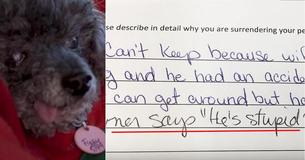 se describe in detail why you are surrendering your pe
Can't keep because wi
g and he had an accide
can get around but h
ner says "He's stupid"